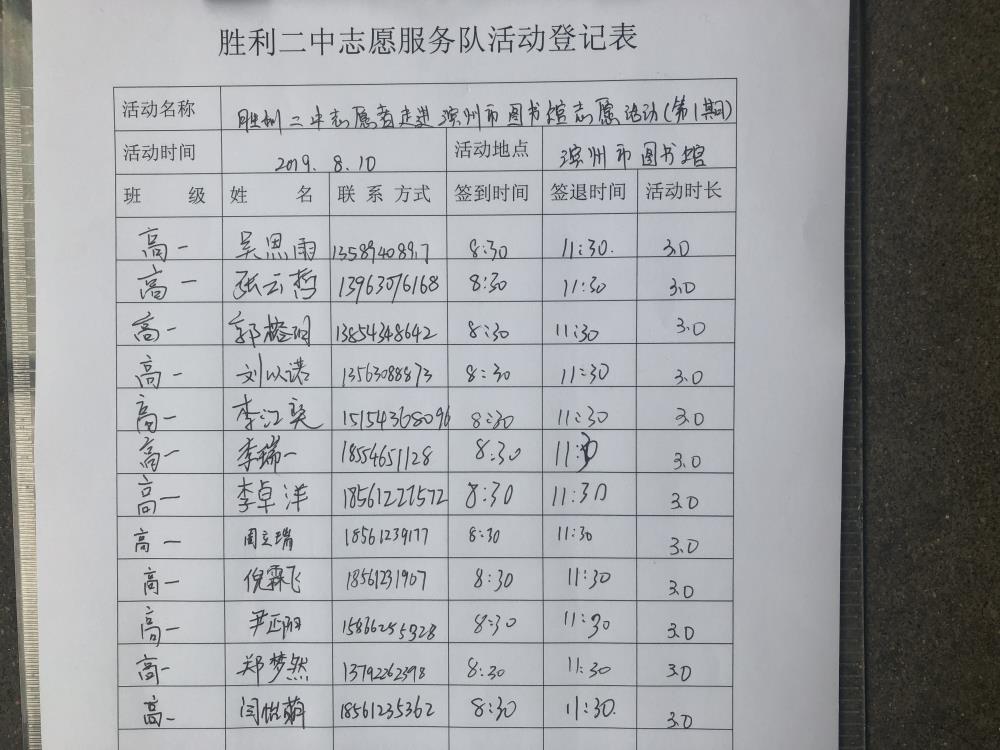 胜利二中志愿服务队活动登记表
活动名称 胜利二中志愿者走进滨州市图书馆志愿活动(第1期)
活动时间 2019.8.10 活动地点 滨州市图书馆
班级 姓名 联系方式 签到时间 签退时间 活动时长
高一 吴思雨 8:30 11:30. 3.0
高一 张云哲 13963076168 8:30 11:30 3.0
高一 13854348642 8:30 11:30 3.0
高一 刘以诺 13563088873 8:30 11:30 3.0
高一 李江奕 15154368096 8:30 11:30 3.0
高一 李瑞一 18554651128 8:30 11:30 3.0
高一 李卓洋 18561227572 8:30 11:30 3.0
高一 周立瑞 18561239177 8:30 11:30 3.0
高一 倪霖飞 18561231907 8:30 11:30 3.0
高一 15866255328 8:30 11:30 3.0
高一 郑梦然 13792262398 8:30 11:30 3.0
高一 闫悦萌 18561235362 8:30 11:30. 3.0